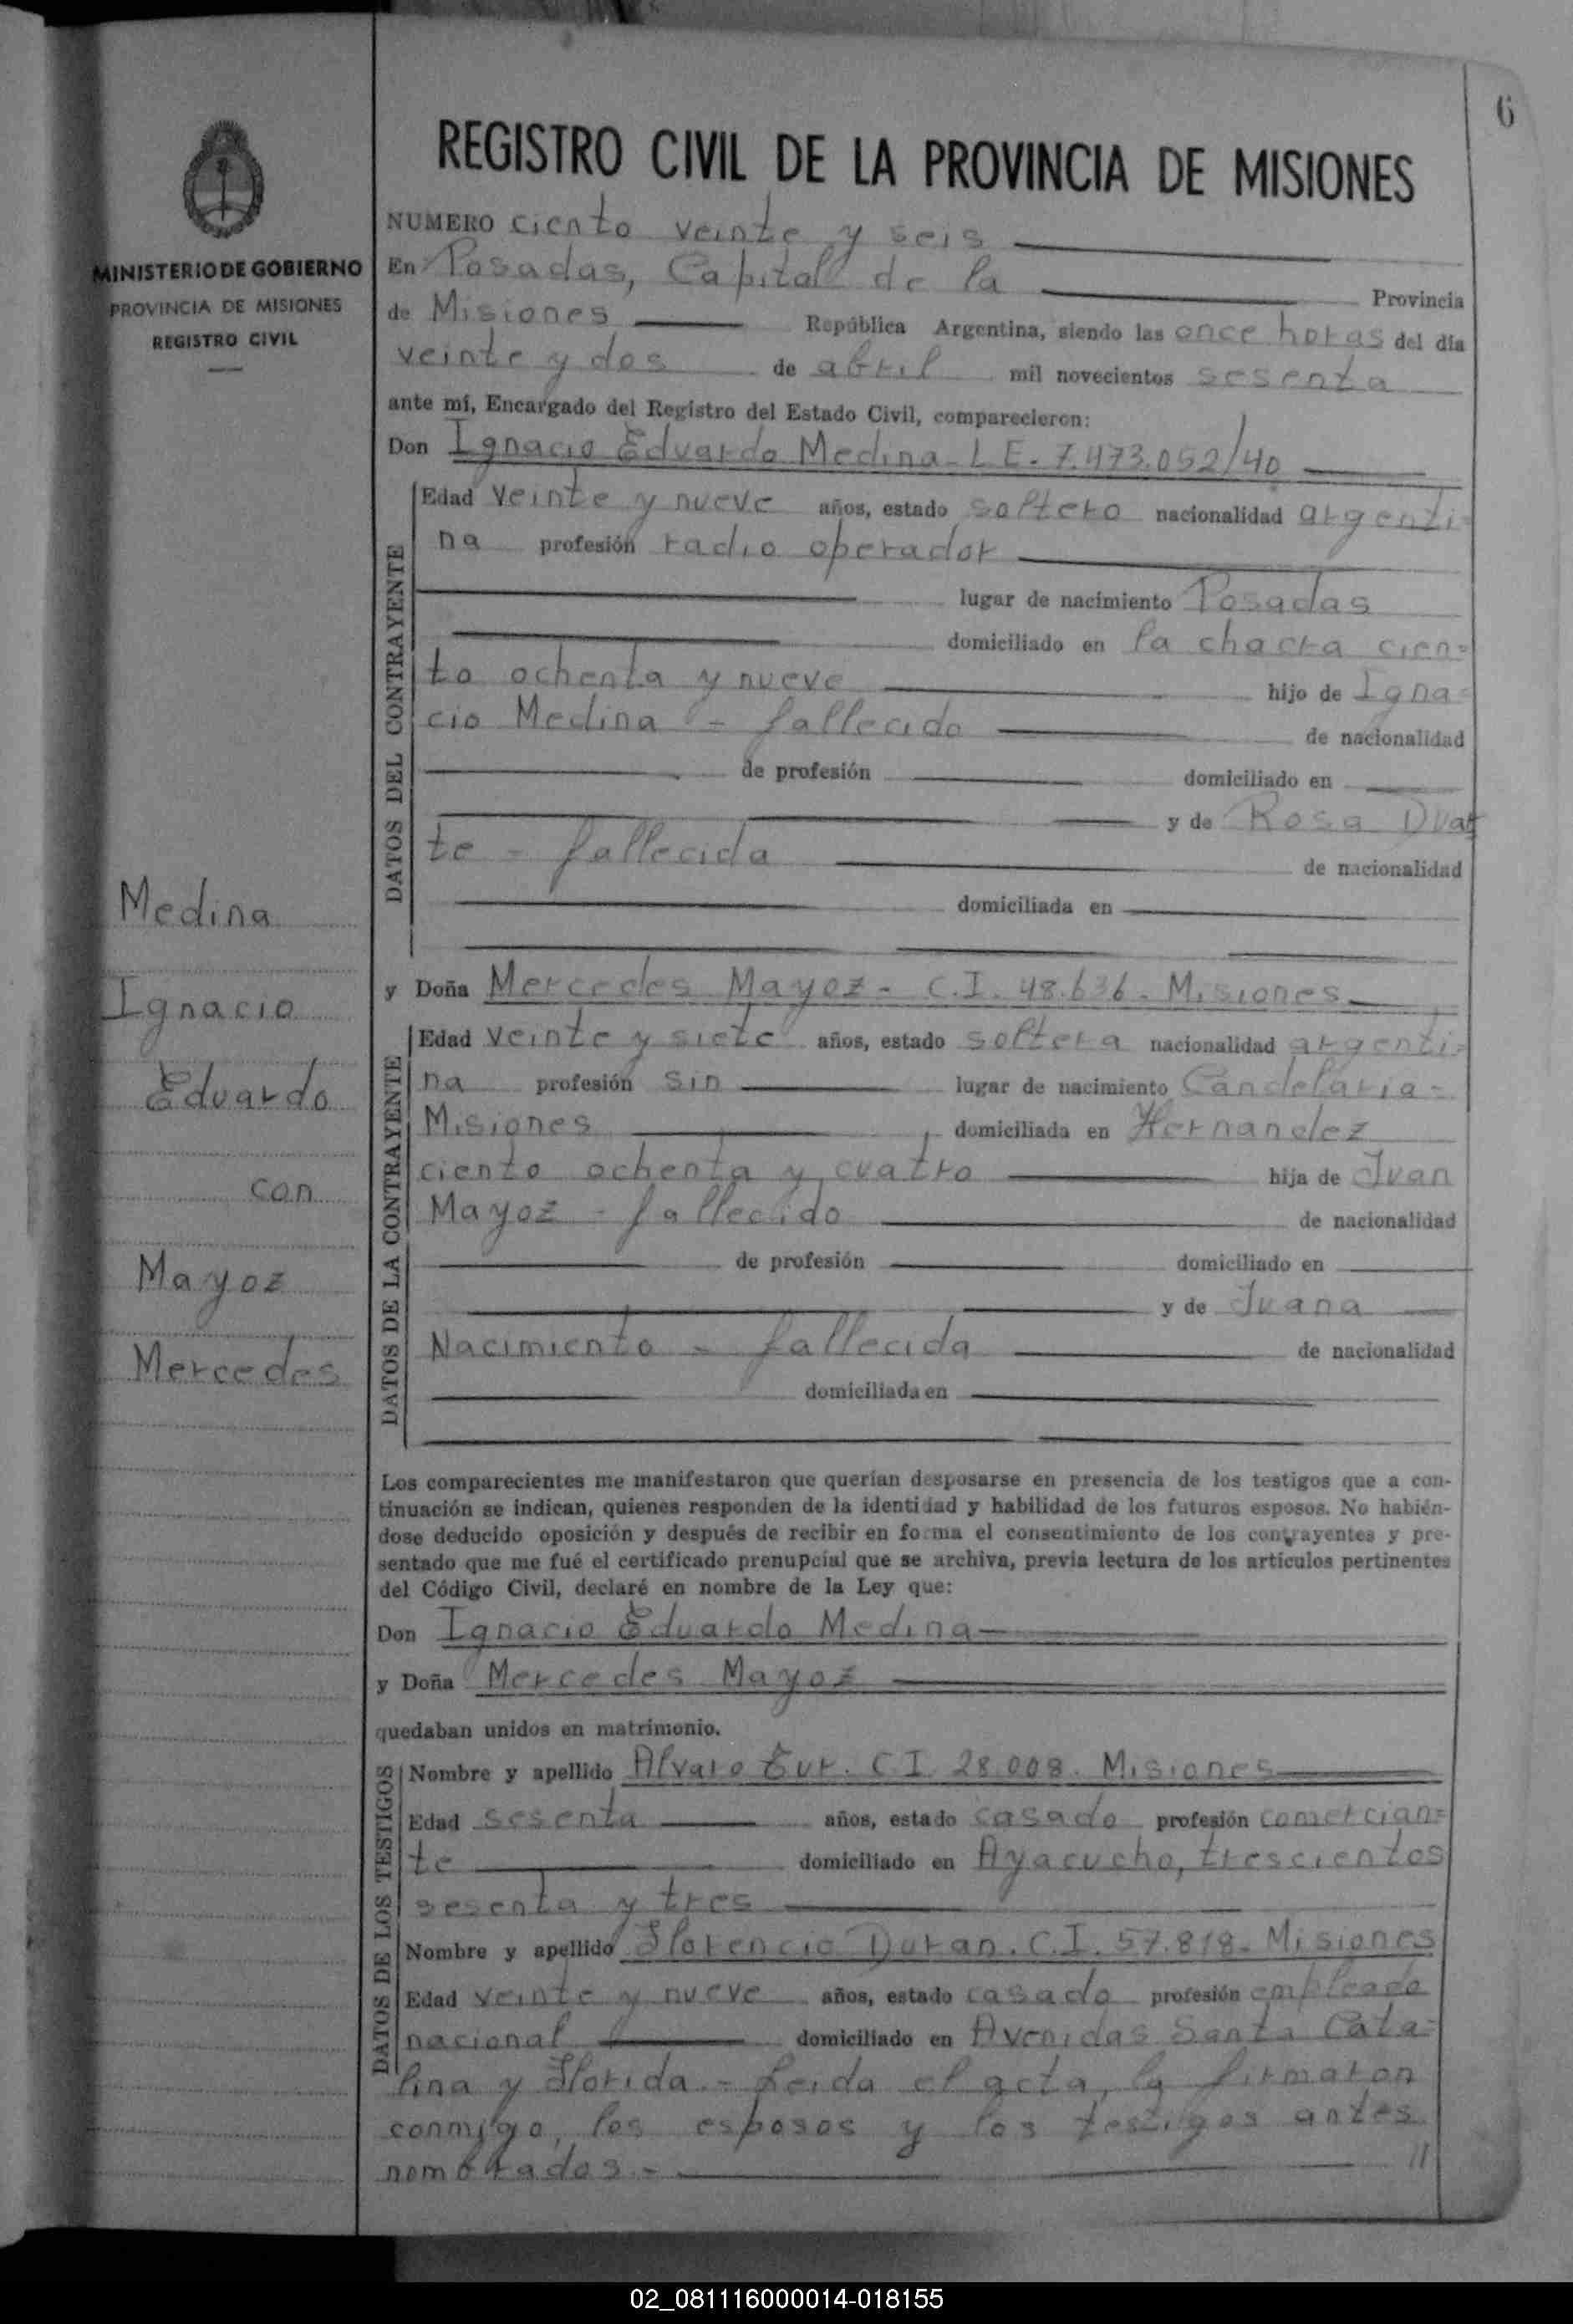 6
REGISTRO CIVIL DE LA PROVINCIA DE MISIONES
MINISTERIO DE GOBIERNO
PROVINCIA DE MISIONES
REGISTRO CIVIL
Medina
Ignacio
Eduardo
con
Mayoz
Mercedes
NUMERO ciento veinte y seis
En Posadas, Capital de la Provincia
de Misiones República Argentina, siendo las once horas del día
veinte y dos de abril mil novecientos sesenta
ante mí, Encargado del Registro del Estado Civil, comparecieron:
Don Ignacio Eduardo Medina - L E. 7.473.052/40
DATOS DEL CONTRAYENTE
Edad veinte y nueve años, estado soltero nacionalidad argenti=
na profesión radio operador
lugar de nacimiento Posadas
domiciliado en la chacra cien=
to ochenta y nueve hijo de Igna=
cio Medina - fallecido de nacionalidad
de profesión domiciliado en
y de Rosa Duar
te - fallecida de nacionalidad
domiciliada en
y Doña Mercedes Mayoz - C.I. 48.636 - Misiones
DATOS DE LA CONTRAYENTE
Edad veinte y siete años, estado soltera nacionalidad argenti=
na profesión sin lugar de nacimiento Candelaria -
Misiones domiciliada en Hernandez
ciento ochenta y cuatro hija de Juan
Mayoz - fallecido de nacionalidad
de profesión domiciliado en
y de Juana
Nacimiento - fallecida de nacionalidad
domiciliada en
Los comparecientes me manifestaron que querían desposarse en presencia de los testigos que a con-
tinuación se indican, quienes responden de la identidad y habilidad de los futuros esposos. No habién-
dose deducido oposición y después de recibir en forma el consentimiento de los contrayentes y pre-
sentado que me fué el certificado prenupcial que se archiva, previa lectura de los artículos pertinentes
del Código Civil, declaré en nombre de la Ley que:
Don Ignacio Eduardo Medina
y Doña Mercedes Mayoz
quedaban unidos en matrimonio.
DATOS DE LOS TESTIGOS
Nombre y apellido Alvaro C.I. 28.008. Misiones
Edad sesenta años, estado casado profesión comercian=
te domiciliado en Ayacucho, trescientos
sesenta y tres
Nombre y apellido Florencio Duran. C.I. 57.818 - Misiones
Edad veinte y nueve años, estado casado profesión empleado
nacional domiciliado en Avenidas Santa Cata=
lina y Florida. - Leida el acta, la firmaron
conmigo, los esposos y los testigos antes
nombrados. - //
02_081116000014-018155